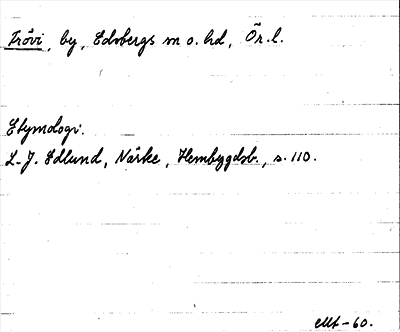 Frövi, by, Edsbergs sn o. hd, Ör. l.
Etymologi:
L-J. Edlund, Närke, Hembygdsb., s. 110.
-60.